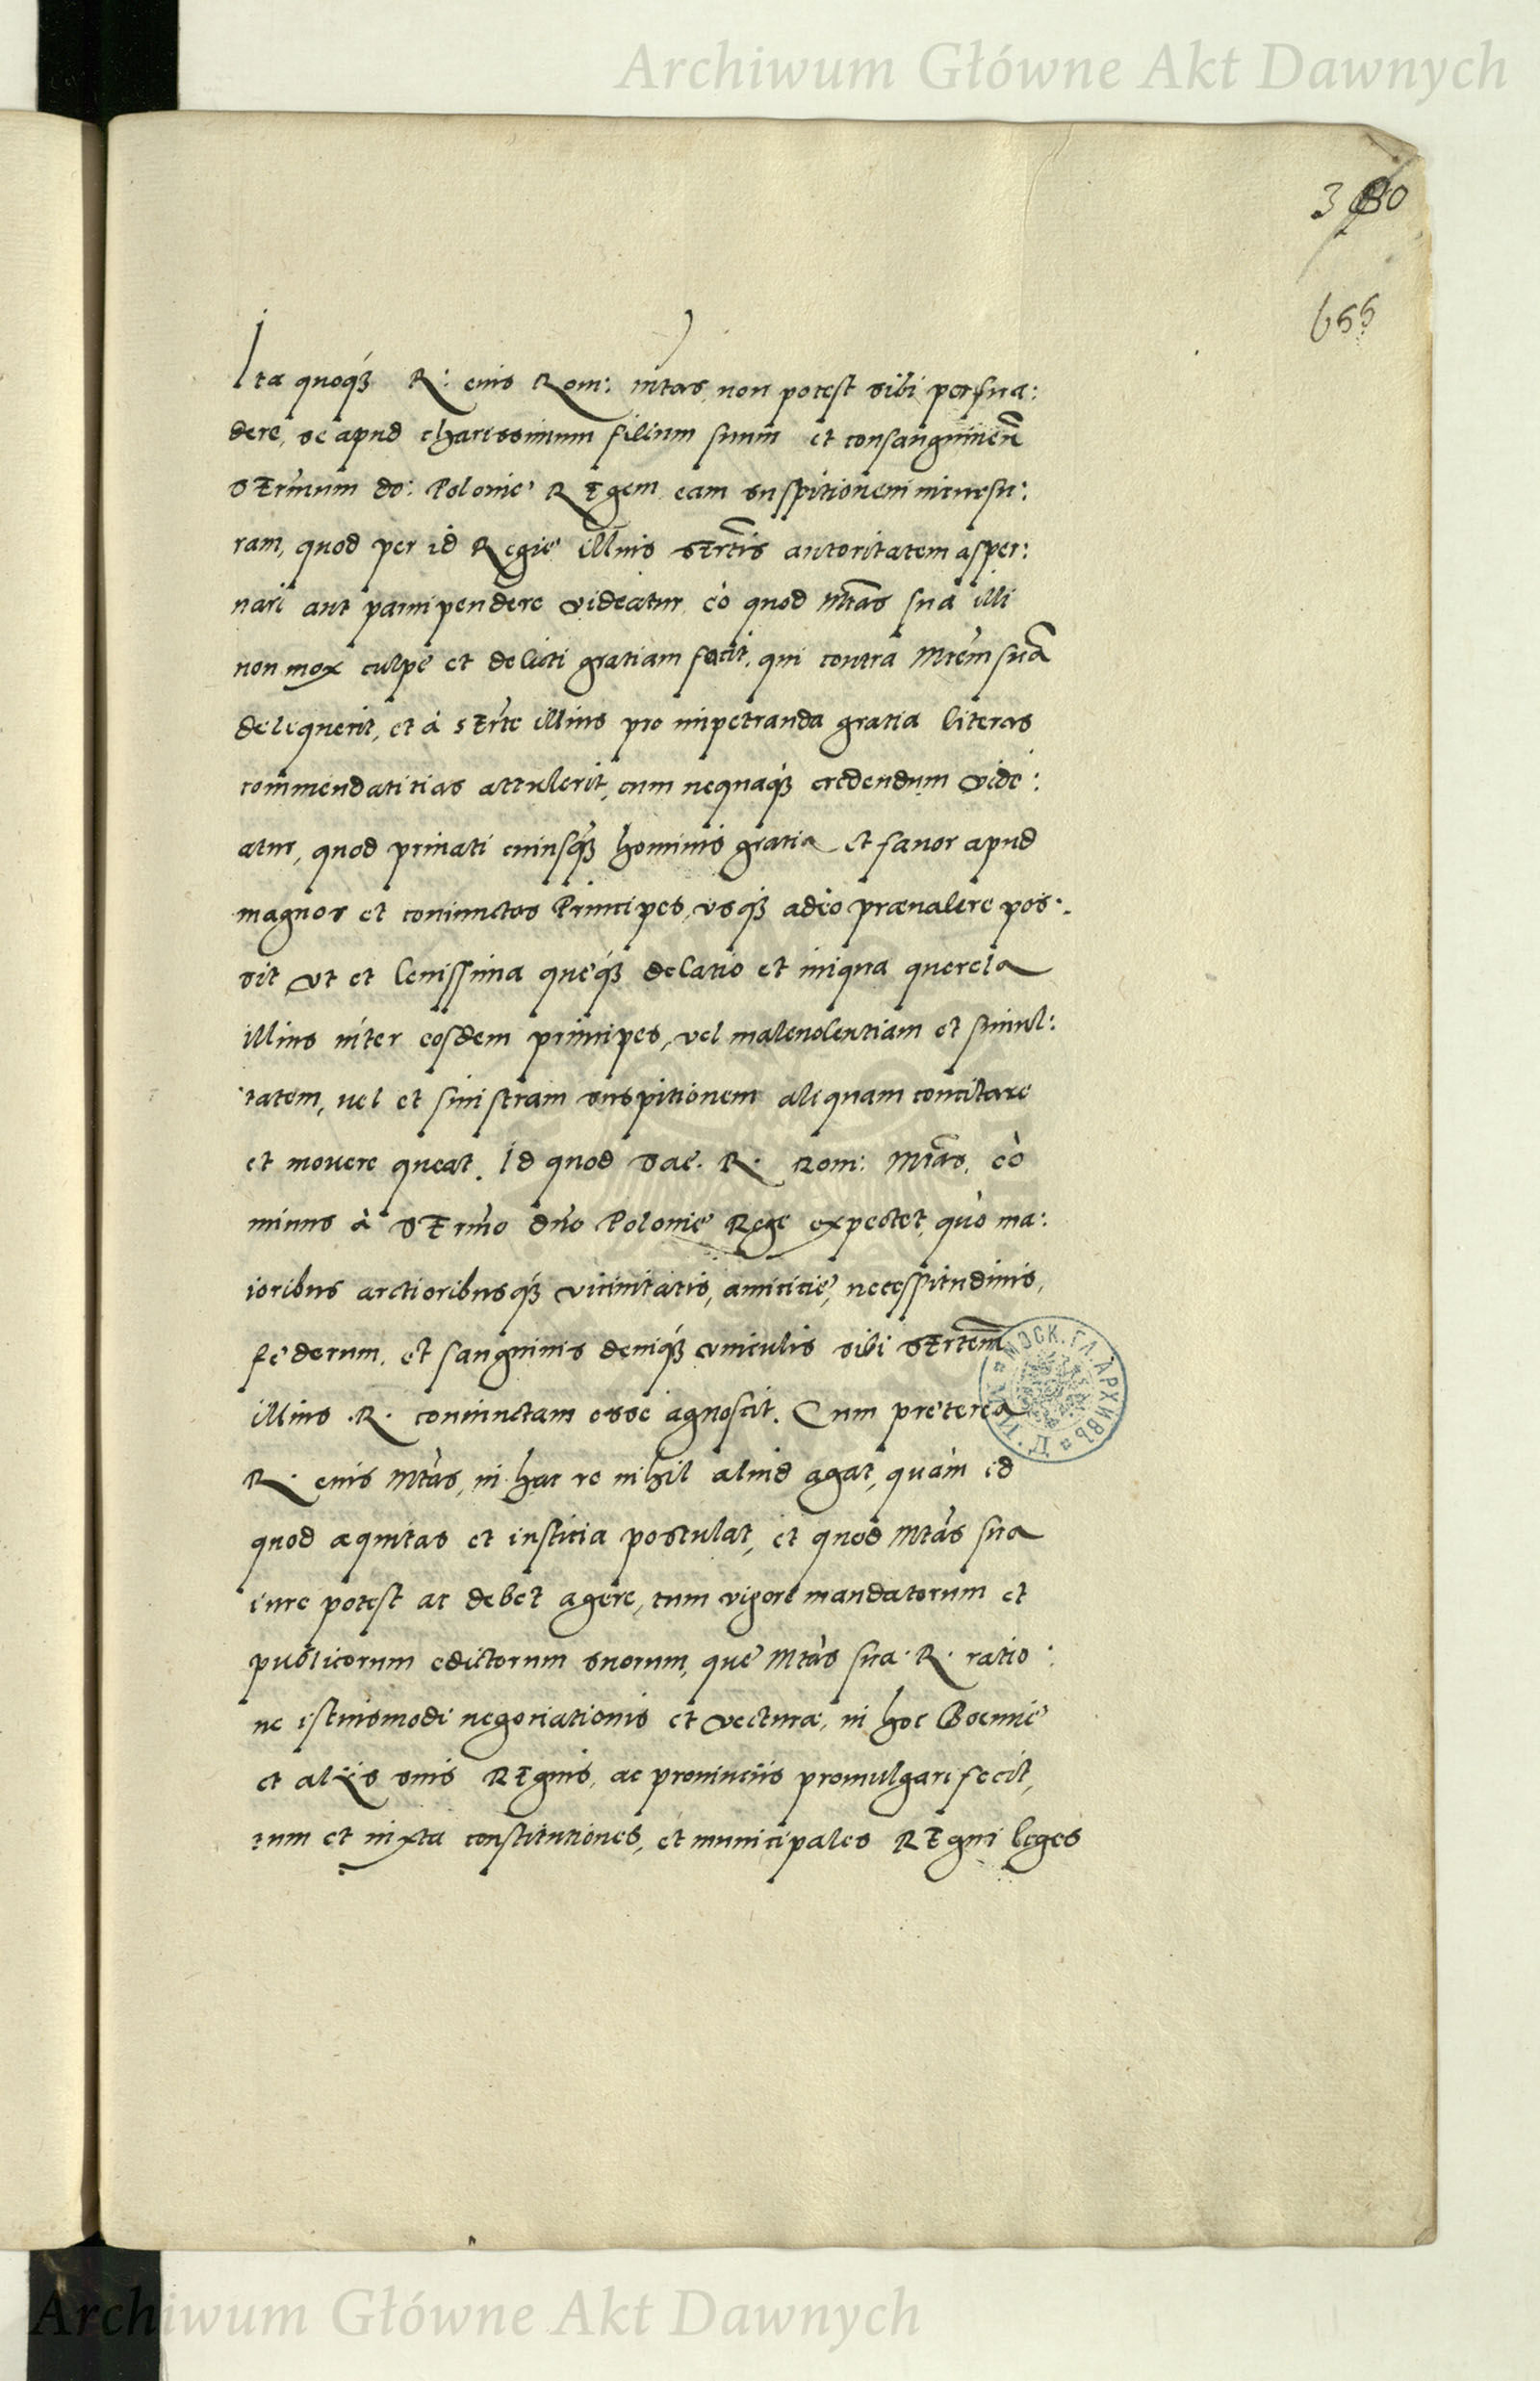 Archiwum Główne Akt Dawnych
380
655
Ita quoq́ꝫ R: eius Rom: mtas, non potest sibi persua:
dere, se apud charissimum filium suum et consanguineũ
sErmum do: Polonie REgem eam suspitionem incursu:
ram, quod per id Regie illius sErtis autoritatem asper:
nari aut paruipendere videatur, eò quod Mtas sua illi
non mox culpe et delicti gratiam fecit, qui contra Mtem suã
deliquerit, et à sErte illius pro impetranda gratia literas
commendatitias attulerit, cum nequaq́ꝫ credendum vide:
atur, quod priuati cuiusq́ꝫ hominis gratia et fauor apud
magnos et coniunctos Principes, vsq́ꝫ adeo præualere pos:
sit vt et leuissima queq́ꝫ delatio et iniqua querela
illius inter eosdem principes, vel maleuolentiam et simul:
tatem, uel et sinistram suspitionem aliquam concitare
et mouere queat. Id quod sae. R. Rom: Mtas, eò
minus à sErmo dno Polonie Rege expectet, quò ma:
ioribus arctioribusq́ꝫ vicinitatis, amicicie, necessitudinis,
federum, et sanguinis deniq́ꝫ vinculis sibi sErtem
illius .R. coniunctam esse agnoscit. Cum preterea
R. eius Mtàs, in hac re nihil aliud agat, quàm id
quod æquitas et iusticia postulat, et quod Mtàs sua
iure potest ac debet agere, tum vigore mandatorum et
publicorum edictorum suorum, que Mtàs sua .R. ratio:
ne istiusmodi negociationis et vecturæ, in hoc Boemie
et alijs suis REgnis, ac prouinciis promulgari fecit,
tum et iuxta constitutiones, et municipales REgni leges
МОСК. ГЛ. АРХИВЪ
Archiwum Główne Akt Dawnych